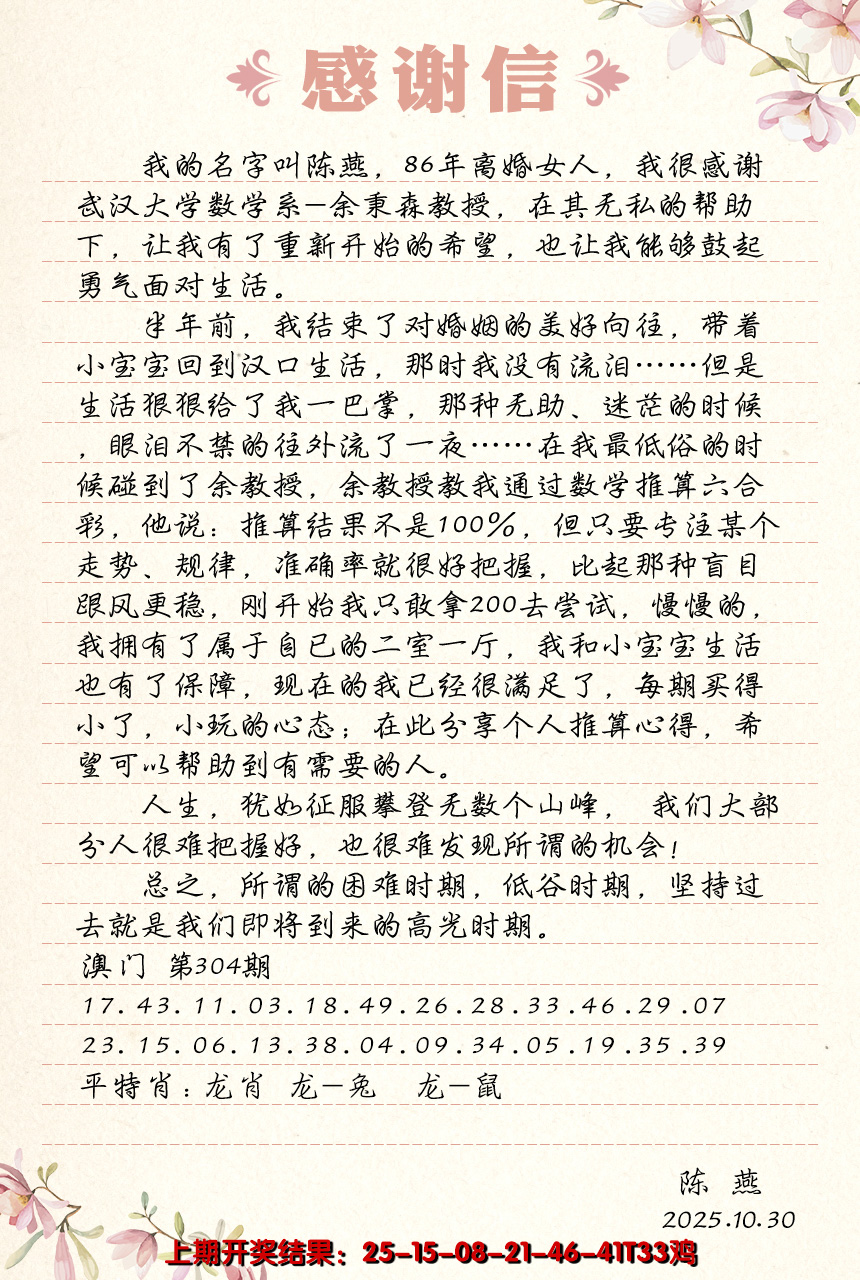 感谢信
我的名字叫陈燕，86年离婚女人，我很感谢
武汉大学数学系—余秉森教授，在其无私的帮助
下，让我有了重新开始的希望，也让我能够鼓起
勇气面对生活。
半年前，我结束了对婚姻的美好向往，带着
小宝宝回到汉口生活，那时我没有流泪……但是
生活狠狠给了我一巴掌，那种无助、迷茫的时候
，眼泪不禁的往外流了一夜……在我最低俗的时
候碰到了余教授，余教授教我通过数学推算六合
彩，他说：推算结果不是100%，但只要专注某个
走势、规律，准确率就很好把握，比起那种盲目
跟风更稳，刚开始我只敢拿200去尝试，慢慢的，
我拥有了属于自已的二室一厅，我和小宝宝生活
也有了保障，现在的我已经很满足了，每期买得
小了，小玩的心态；在此分享个人推算心得，希
望可以帮助到有需要的人。
人生，犹如征服攀登无数个山峰， 我们大部
分人很难把握好，也很难发现所谓的机会！
总之，所谓的困难时期，低谷时期，坚持过
去就是我们即将到来的高光时期。
澳门 第304期
17.43.11.03.18.49.26.28.33.46.29.07
23.15.06.13.38.04.09.34.05.19.35.39
平特肖：龙肖 龙—兔 龙—鼠
陈 燕
2025.10.30
上期开奖结果：25-15-08-21-46-41T33鸡